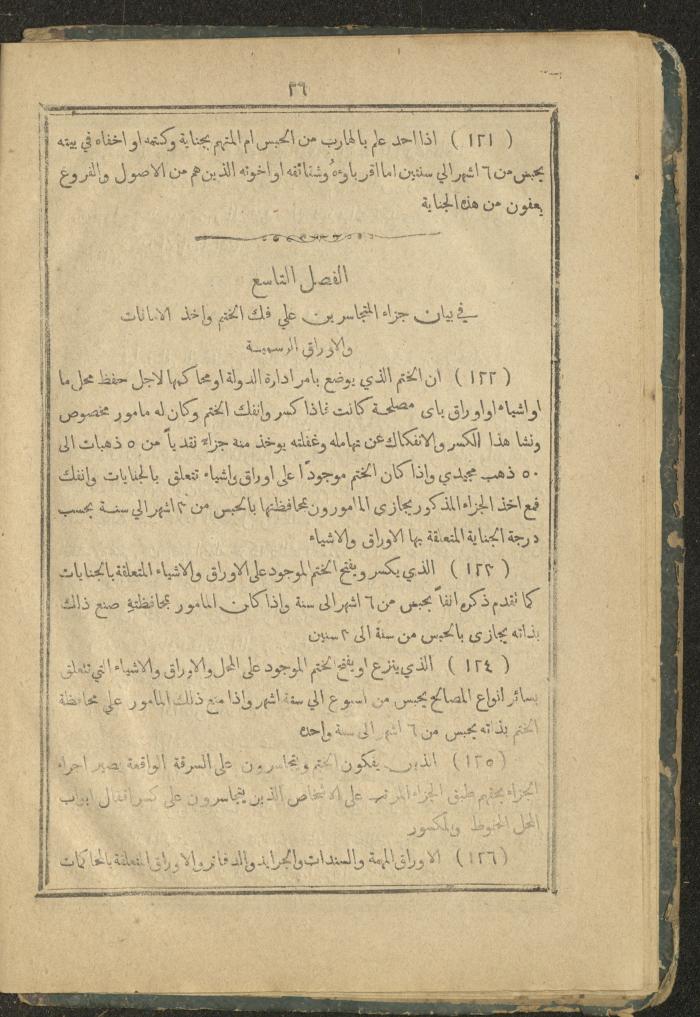 ٣٦
( ١٢١ ) اذا احد علم بالهارب من الحبس ام المتهم بجناية وكتمه او اخفاه في بيته
يحبس من ٦ اشهر الي سنتين اما اقرباوءهُ وشقائقه او اخوته الذين هم من الاصول والفروع
يعفون من هذه الجناية
الفصل التاسع
في بيان جزاء المتجاسرين علي فك الختم واخذ الامانات
والاوراق الرسمية
( ١٢٢ ) ان الختم الذي يوضع بامر ادارة الدولة او محاكمها لاجل حفظ محل ما
او اشياء او اوراق باى مصلحة كانت فاذا كسر وانفك الختم وكان له مامور مخصوص
ونشا هذا الكسر والانفكاك عن تهامله وغفلته يوخذ منه جزاء نقدياً من ٥ ذهبات الى
٥٠ ذهب مجيدي واذا كان الختم موجودًا على اوراق واشياء تتعلق بالجنايات وانفك
فمع اخذ الجزاء المذكور يجازى المامورون بمحافظتها بالحبس من ٣ اشهر الي سنة بحسب
درجة الجناية المتعلقة بها الاوراق والاشياء
( ١٢٣ ) الذي يكسر ويفتح الختم الموجود على الاوراق والاشياء المتعلقة بالجنايات
كما تقدم ذكره انفاً يحبس من ٦ اشهر الى سنة واذا كان المامور بمحافظتهِ صنع ذالك
بذاته يجازى بالحبس من سنة الى ٣ سنين
( ١٢٤ ) الذي ينزع او يفتح الختم الموجود على المحل والاوراق والاشياء التي تتعلق
بسائر انواع المصالح يحبس من اسبوع الي ستة اشهر واذا صنع ذلك المامور علي محافظة
الختم بذاته يحبس من ٦ اشهر الى سنة واحده
( ١٢٥ ) الذين يفكون الختم ويتجاسرون على السرقة الواقعة يصير اجراء
الجزاء بحقهم طبق الجزاء المرتب على الاشخاص الذين يتجاسرون على كسر اقفال ابواب
المحل المحفوظ والمكسور
( ١٢٦ ) الاوراق المهمة والسندات والجرايد والدفاتر والاوراق المتعلقة بالمحاكمات